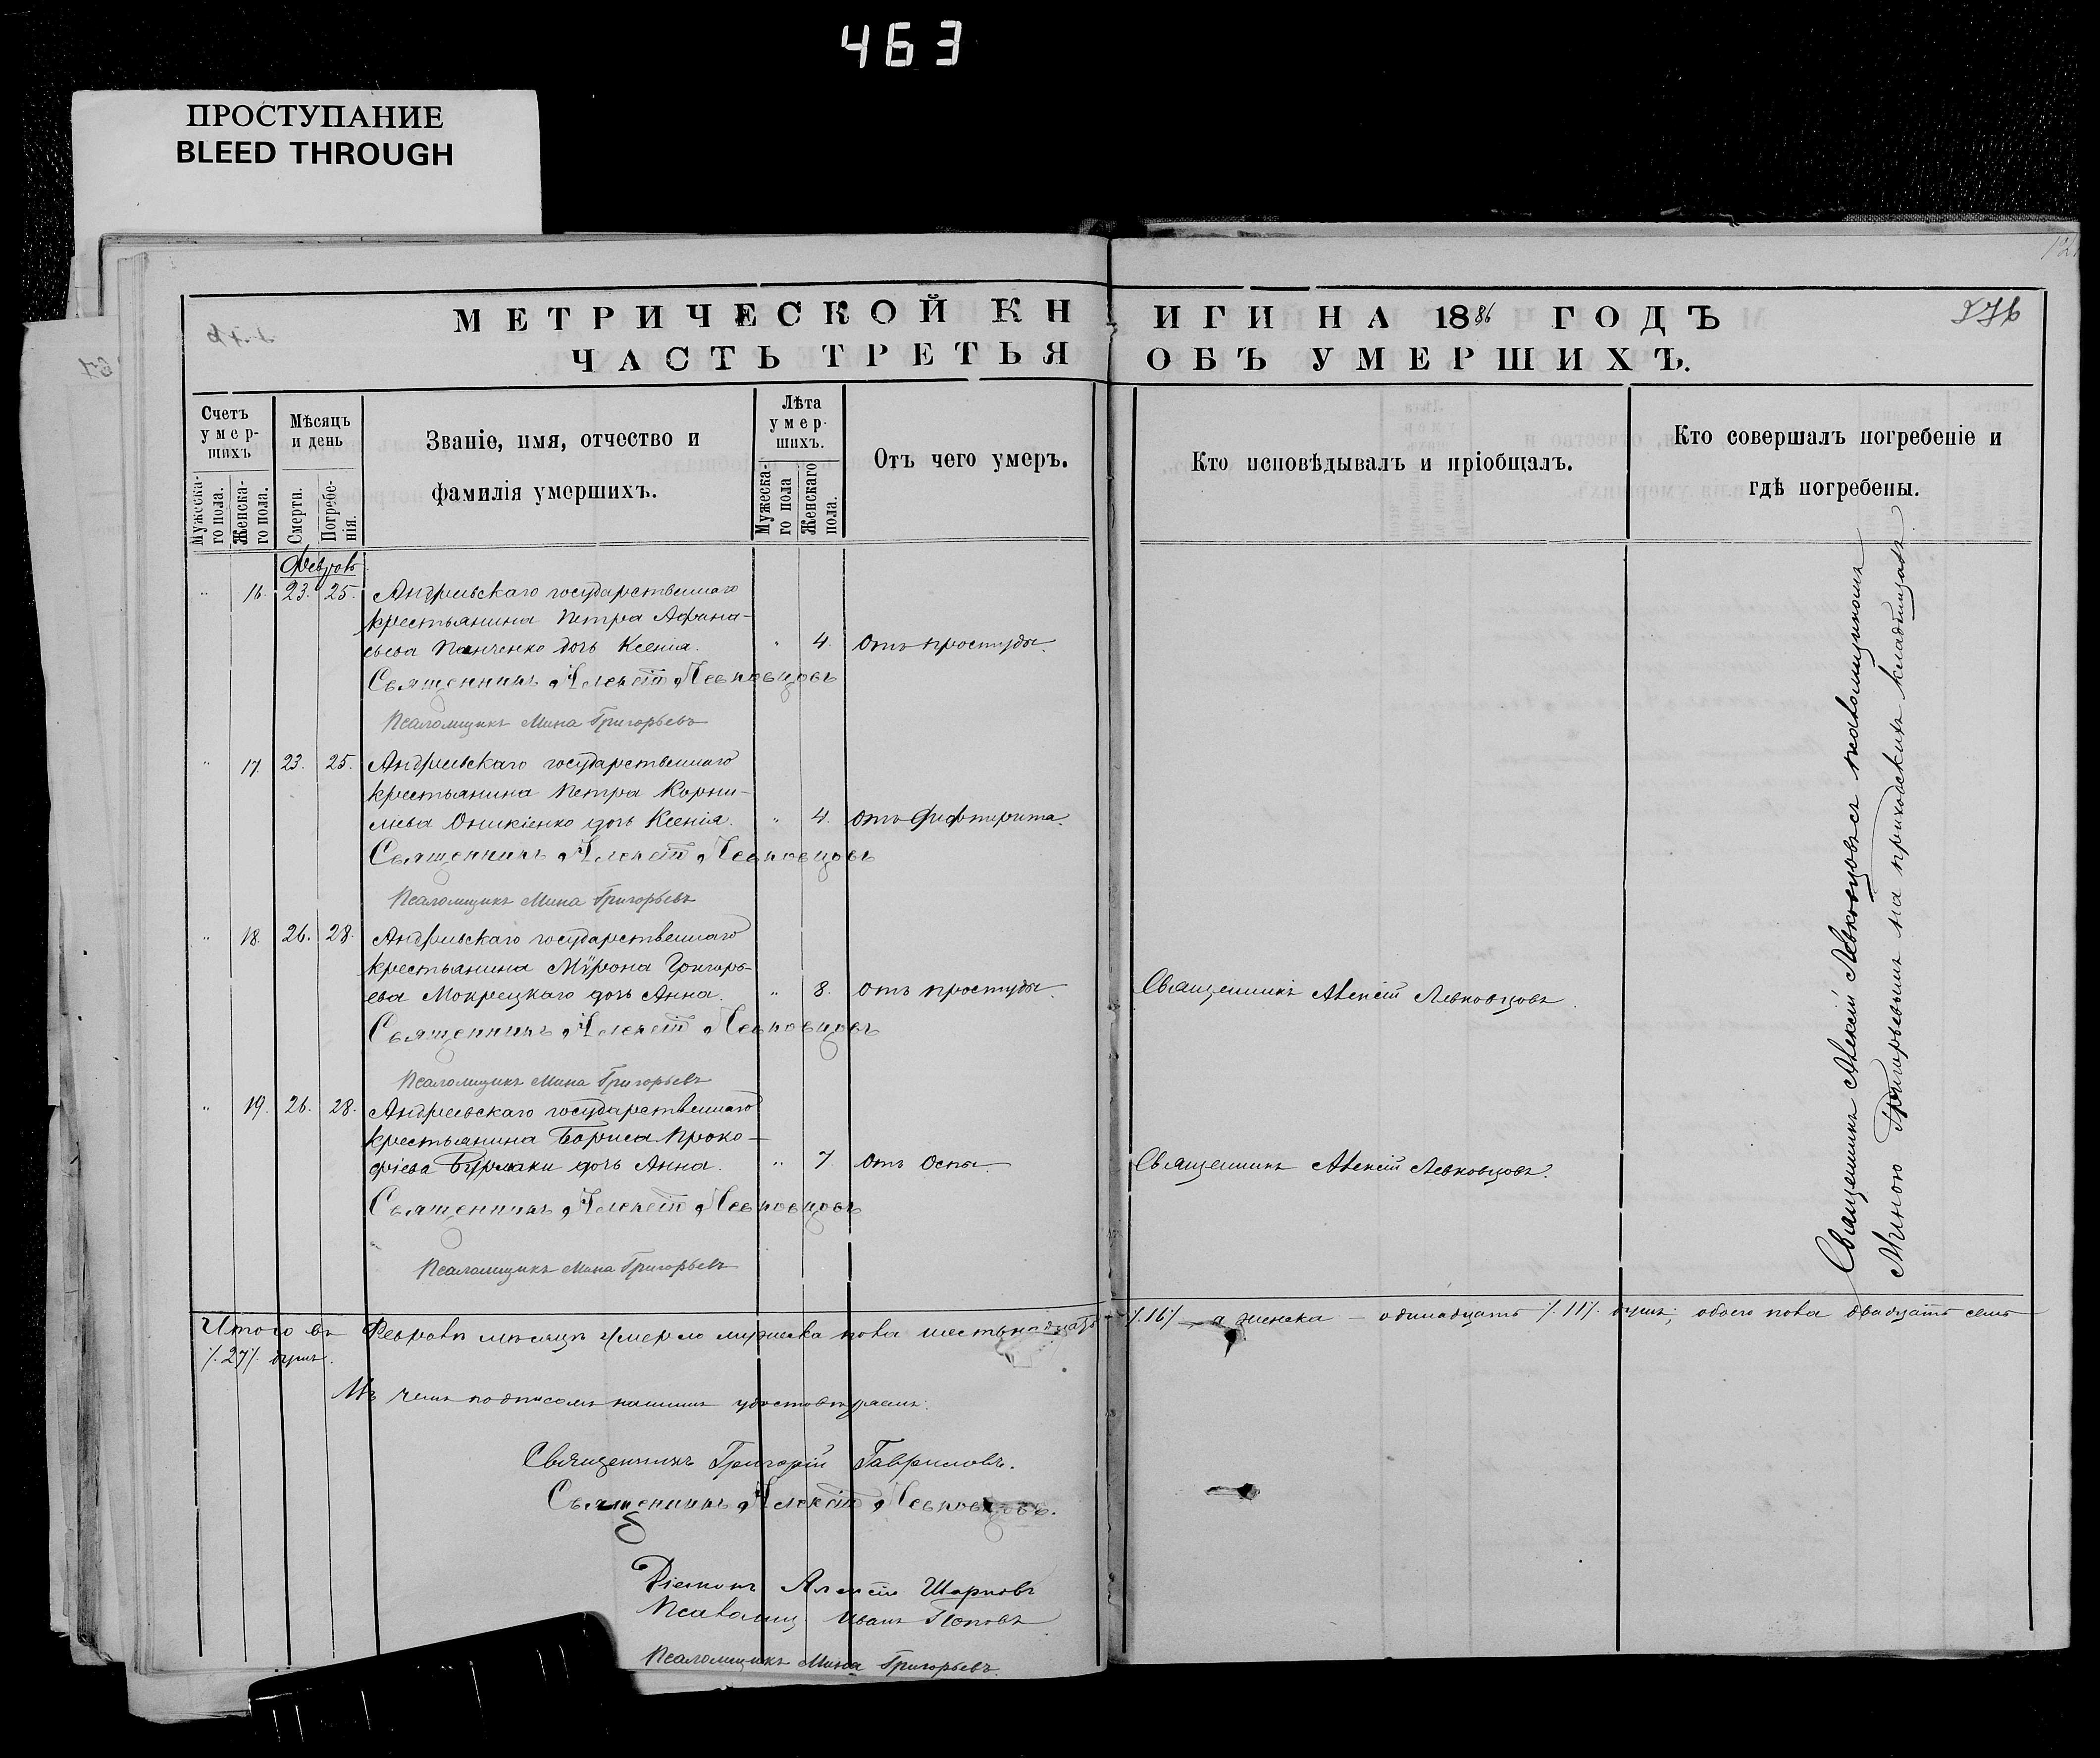 463
ПРОСТУПАНИЕ
BLEED THROUGH
МЕТРИЧЕСКОЙ КНИГИ НА 1886 ГОДЪ
ЧАСТЬ ТРЕТЬЯ ОБЪ УМЕРШИХЪ.
Счетъ умершихъ
Мужеска-го пола.
Женска-го пола.
Мѣсяцъ и день
Смерти.
Погребе-нія.
Званіе, имя, отчество и фамилія умершихъ.
Лѣта умершихъ.
Мужеска-го пола
Женскаго пола.
Отъ чего умеръ.
Кто исповѣдывалъ и пріобщалъ.
Кто совершалъ погребеніе и
гдѣ погребены.
Февраль
" 16. 23. 25. Андреевскаго государственнаго
крестьянина Петра Афана-
сьева Панченко дочь Ксенія. " 4. Отъ простуды.
Священникъ Алексій Левковцовъ
Псаломщикъ Мина Григорьевъ
" 17. 23. 25. Андреевскаго государственнаго
крестьянина Петра Корни-
лиева Оникіенко дочь Ксенія. " 4. Отъ дифтерита.
Священникъ Алексій Левковцовъ
Псаломщикъ Мина Григорьевъ
" 18. 26. 28. Андреевскаго государственнаго
крестьянина Мѵрона Григорь-
ева Мокрецкаго дочь Анна. " 8. Отъ простуды. Священникъ Алексій Левковцовъ.
Священникъ Алексій Левковцовъ
Псаломщикъ Мина Григорьевъ
" 19. 26. 28. Андреевскаго государственнаго
крестьянина Бориса Проко-
фіева Бурлаки дочь Анна. " 7. Отъ оспы. Священникъ Алексій Левковцовъ.
Священникъ Алексій Левковцовъ
Псаломщикъ Мина Григорьевъ
Священникъ Алексій Левковцовъ съ псаломщикомъ
Миною Григорьевымъ на приходскихъ кладбищахъ.
Итого въ Февралѣ мѣсяцѣ умерло мужеска пола шестьнадцать /.16/. а женска – одинадцать /.11/. душъ; обоего пола двадцать семь
/.27/. душъ.
Въ чемъ подписомъ нашимъ удостовѣряемъ:
Священникъ Григорій Гавриловъ.
Священникъ Алексій Левковцовъ.
Діаконъ Алексій Шарповъ
Псаломщ. Иванъ Поповъ
Псаломщикъ Мина Григорьевъ.